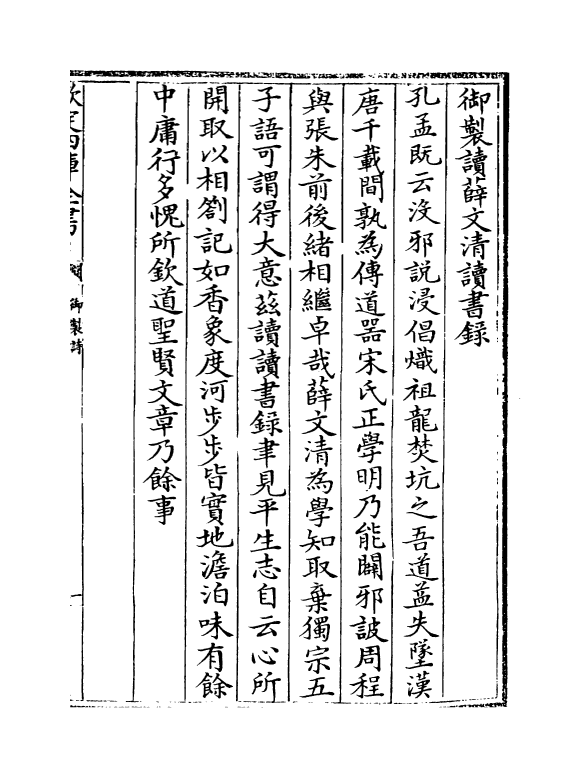 御製讀薛文清讀書錄
孔孟既云没邪說浸倡熾祖龍焚坑之吾道益失墜漢
唐千載間孰為傳道器宋氏正學明乃能闢邪詖周程
與張朱前後緒相繼卓哉薛文清為學知取棄獨宗五
子語可謂得大意茲讀讀書錄聿見平生志自云心所
開取以相劄記如香象度河步步皆實地澹泊味有餘
中庸行多愧所欽道聖賢文章乃餘事
欽定四庫全書
御製詩
一